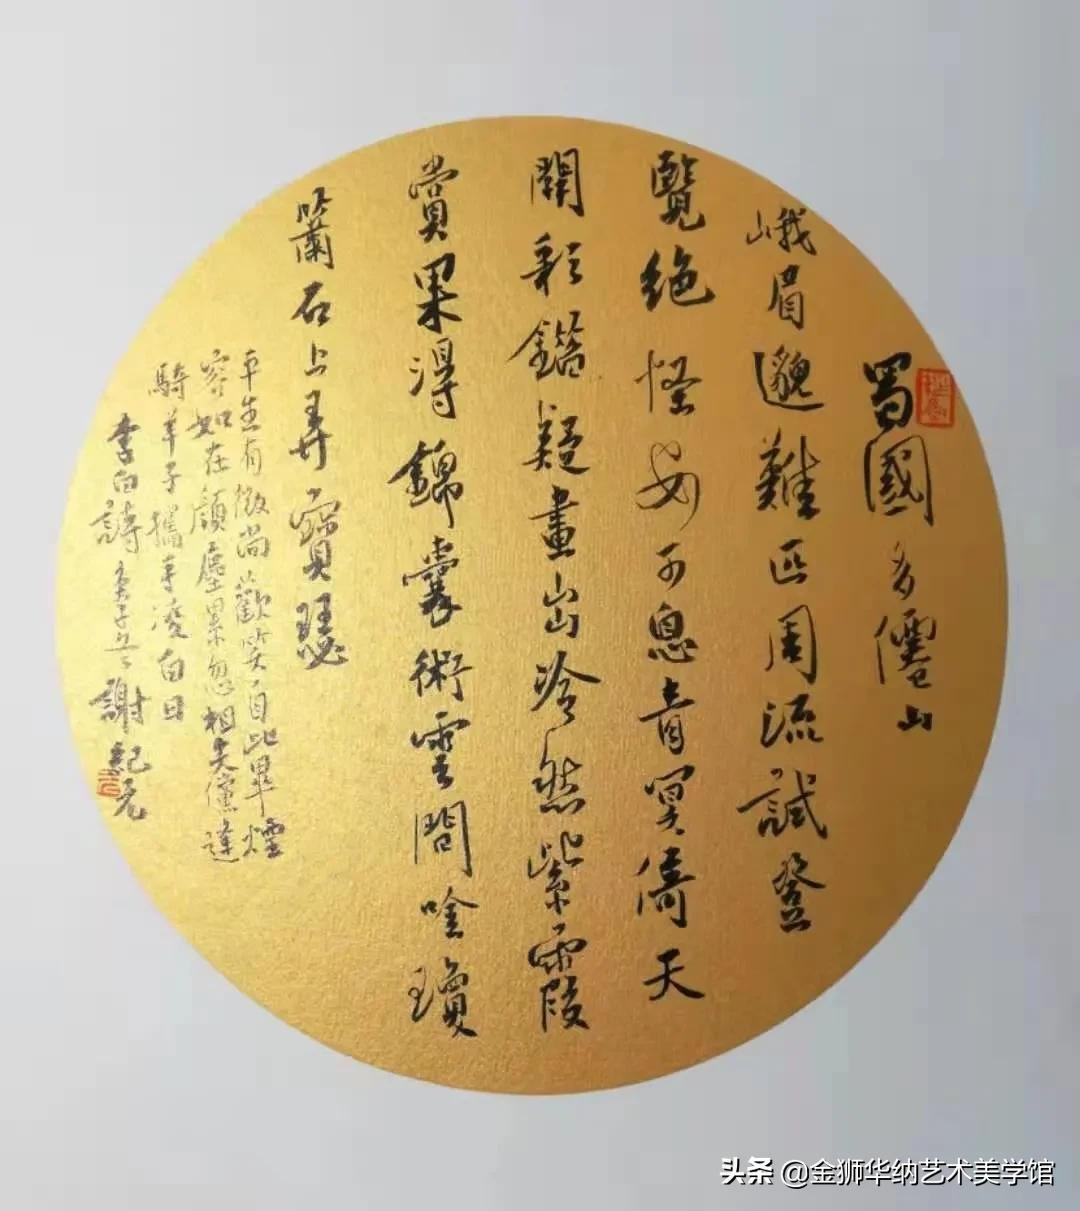 蜀國多僊山
峨眉邈難匹周流試登
覽絕怪安可息青冥倚天
開彩錯疑畫出泠然紫霞
賞果得錦囊術雲間吟瓊
簫石上弄寶瑟
平生有微尚歡笑自此畢煙
容如在顏塵累忽相失儻逢
騎羊子攜手凌白日
李白詩庚子 謝紀
头条 @金狮华纳艺术美学馆